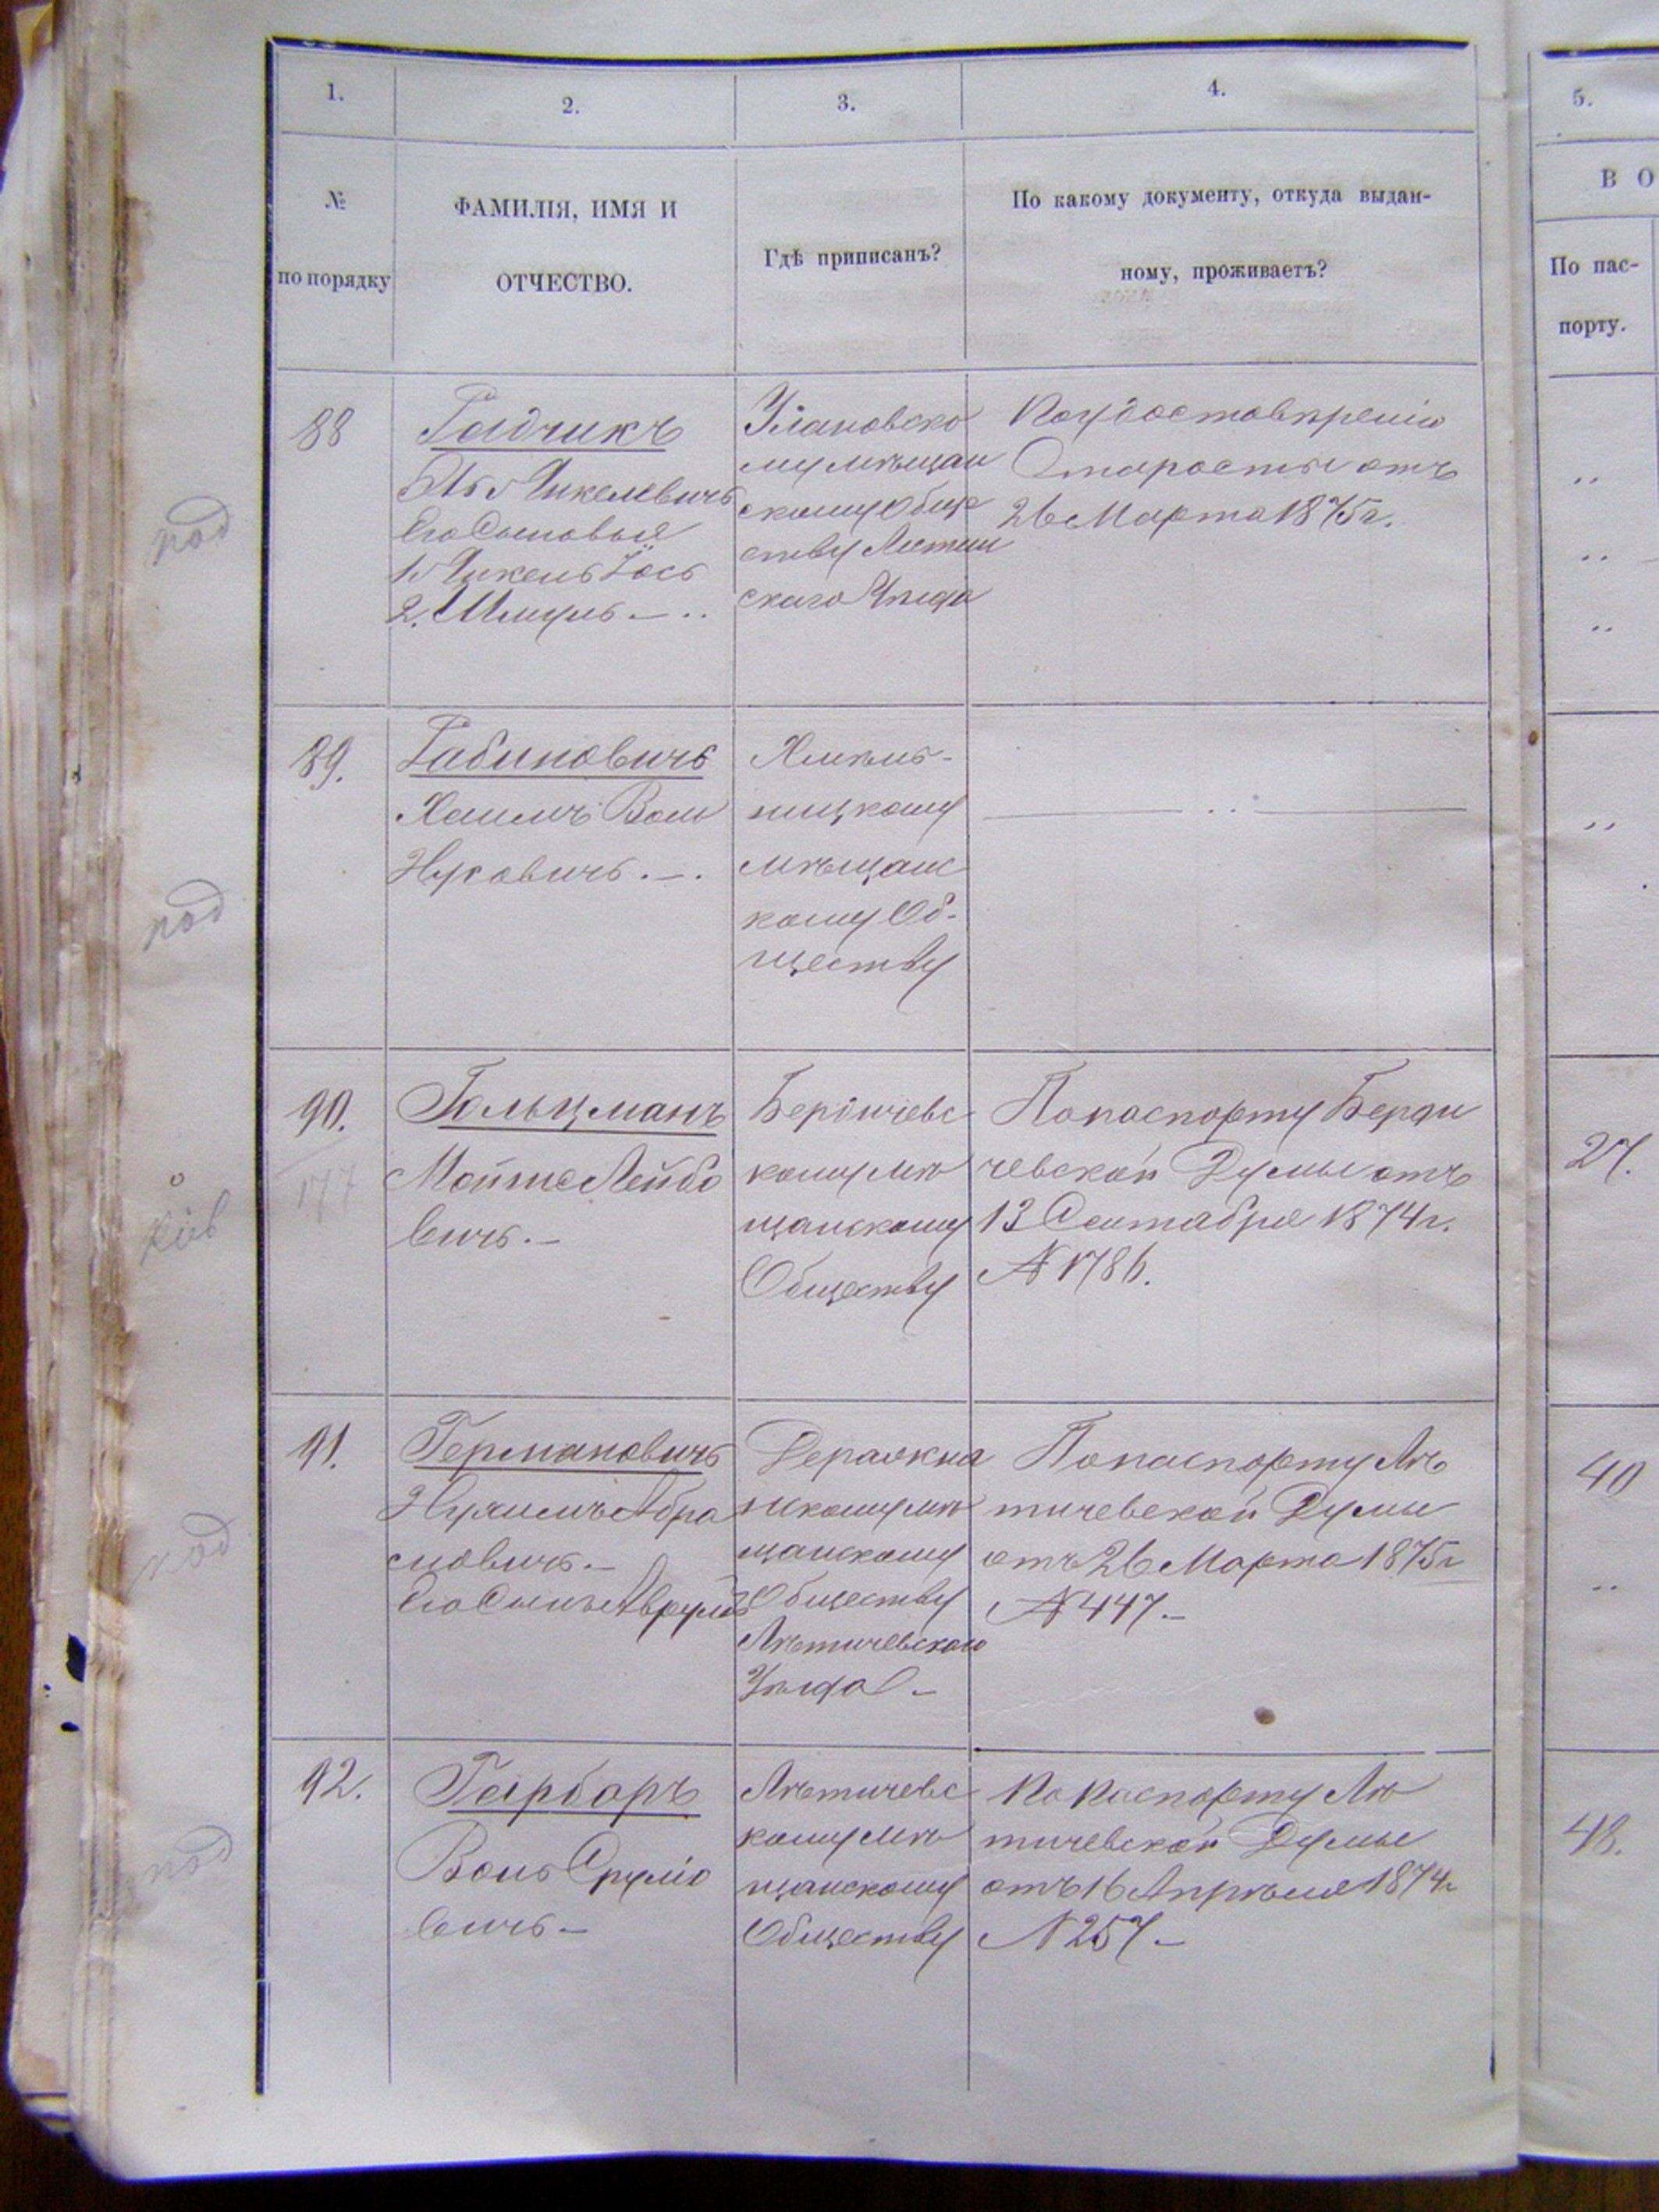 1.
2.
3.
4.
5.
№
по порядку
ФАМИЛІЯ, ИМЯ И
ОТЧЕСТВО.
Гдѣ приписанъ?
По какому документу, откуда выдан-
ному, проживаетъ?
В О
По пас-
порту.
88
Радчикъ
Янкелевичъ
Его Сыновья
1. Янкель Іось
2. Шмуль - ..
Улановско
му мѣщан
скому Обще
ству
скаго Уѣзда
По удостовѣренію
Старосты отъ
26 Марта 1875 г.
под
89.
Рабиновичъ
Хаимъ Вол
Нуховичъ. -.
Хмѣль-
ницкому
мѣщанс
кому Об-
ществу
под
90.
177
Гольцманъ
Мойше Лейбо
вичъ. -
Бердичевс
кому мѣ
щанскому
Обществу
По паспорту Берди
чевской Думы отъ
13 Сентября 1874 г.
№ 1786.
27.
Кіев
91.
Германовичъ
Нухимъ Абра
мовичъ. -
Его Сынъ Аврумъ
Деражня
нскому мѣ
щанскому
Обществу
Лѣтичевскаго
Уѣзда -
По паспорту Лѣ
тичевской Думы
отъ 26 Марта 1875 г
№ 447. -
40
под
92.
Гарбаръ
Волъ Сруліо
вичъ -
Лѣтичевс
кому мѣ
щанскому
Обществу
По Паспорту Лѣ
тичевской Думы
отъ 16 Апрѣля 1874 г
№ 257 -
48.
под